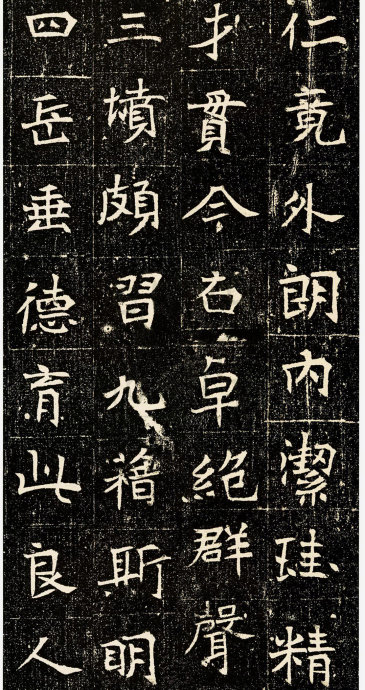 仁竟外朗內潔珪精
才貫今右卓絕群聲
三墳頗習九籍斯明
四岳垂德育此良人